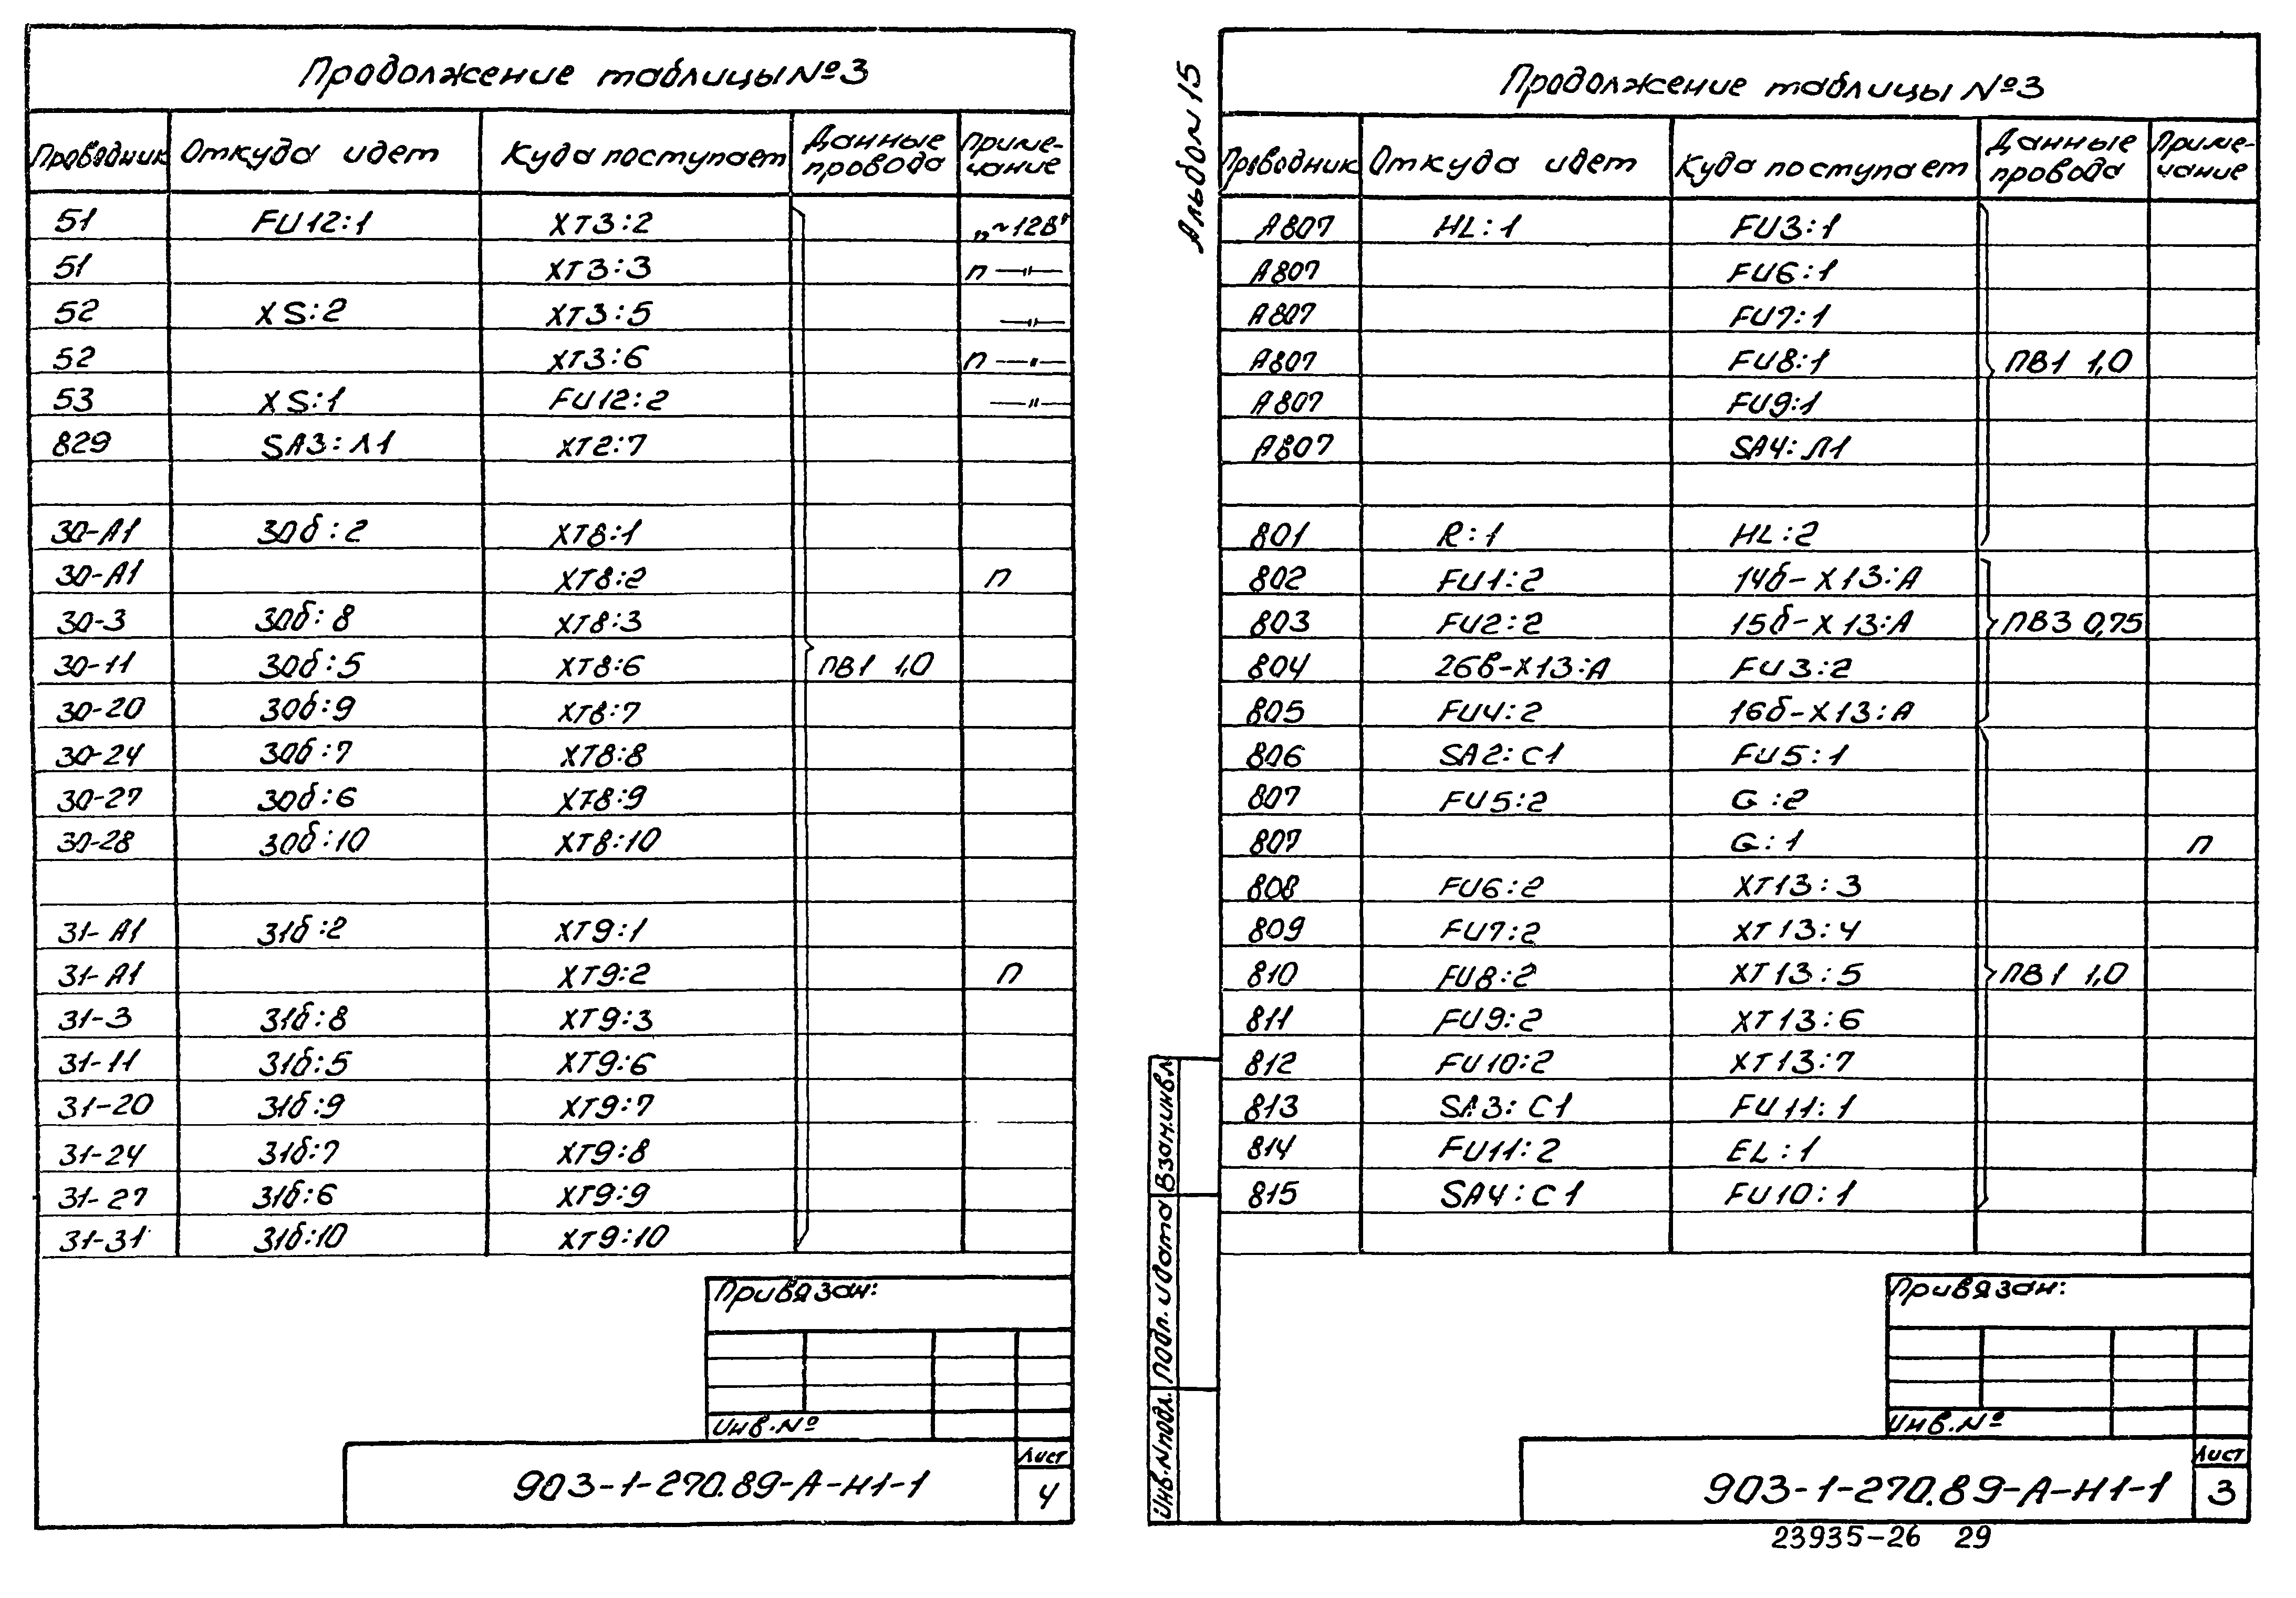 Продолжение таблицы №3
Проводник Откуда идет Куда поступает Данные провода Приме-чание
51 FU12:1 XT3:2 „~12В"
51 XT3:3 п —"—
52 XS:2 XT3:5 —"—
52 XT3:6 п —"—
53 XS:1 FU12:2 —"—
829 SA3:Л1 XT2:7
30-А1 30б:2 XT8:1
30-А1 XT8:2 п
30-3 30б:8 XT8:3
30-11 30б:5 XT8:6 ПВ1 1,0
30-20 30б:9 XT8:7
30-24 30б:7 XT8:8
30-27 30б:6 XT8:9
30-28 30б:10 XT8:10
31-А1 31б:2 XT9:1
31-А1 XT9:2 п
31-3 31б:8 XT9:3
31-11 31б:5 XT9:6
31-20 31б:9 XT9:7
31-24 31б:7 XT9:8
31-27 31б:6 XT9:9
31-31 31б:10 XT9:10
Привязан:
Инв.№
903-1-270.89-А-Н1-1
Лист
4
Альбом 15
Продолжение таблицы №3
Проводник Откуда идет Куда поступает Данные провода Приме-чание
А807 HL:1 FU3:1
А807 FU6:1
А807 FU7:1
А807 FU8:1 ПВ1 1,0
А807 FU9:1
А807 SA4:Л1
801 R:1 HL:2
802 FU1:2 14б-X13:А
803 FU2:2 15б-X13:А ПВ3 0,75
804 26в-X13:А FU3:2
805 FU4:2 16б-X13:А
806 SA2:С1 FU5:1
807 FU5:2 G:2
807 G:1 п
808 FU6:2 XT13:3
809 FU7:2 XT13:4
810 FU8:2 XT13:5 ПВ1 1,0
811 FU9:2 XT13:6
812 FU10:2 XT13:7
813 SA3:С1 FU11:1
814 FU11:2 EL:1
815 SA4:С1 FU10:1
Взам.инв.№
Подп. и дата
Инв.№ подл.
Привязан:
Инв.№
903-1-270.89-А-Н1-1
Лист
3
23935-26 29